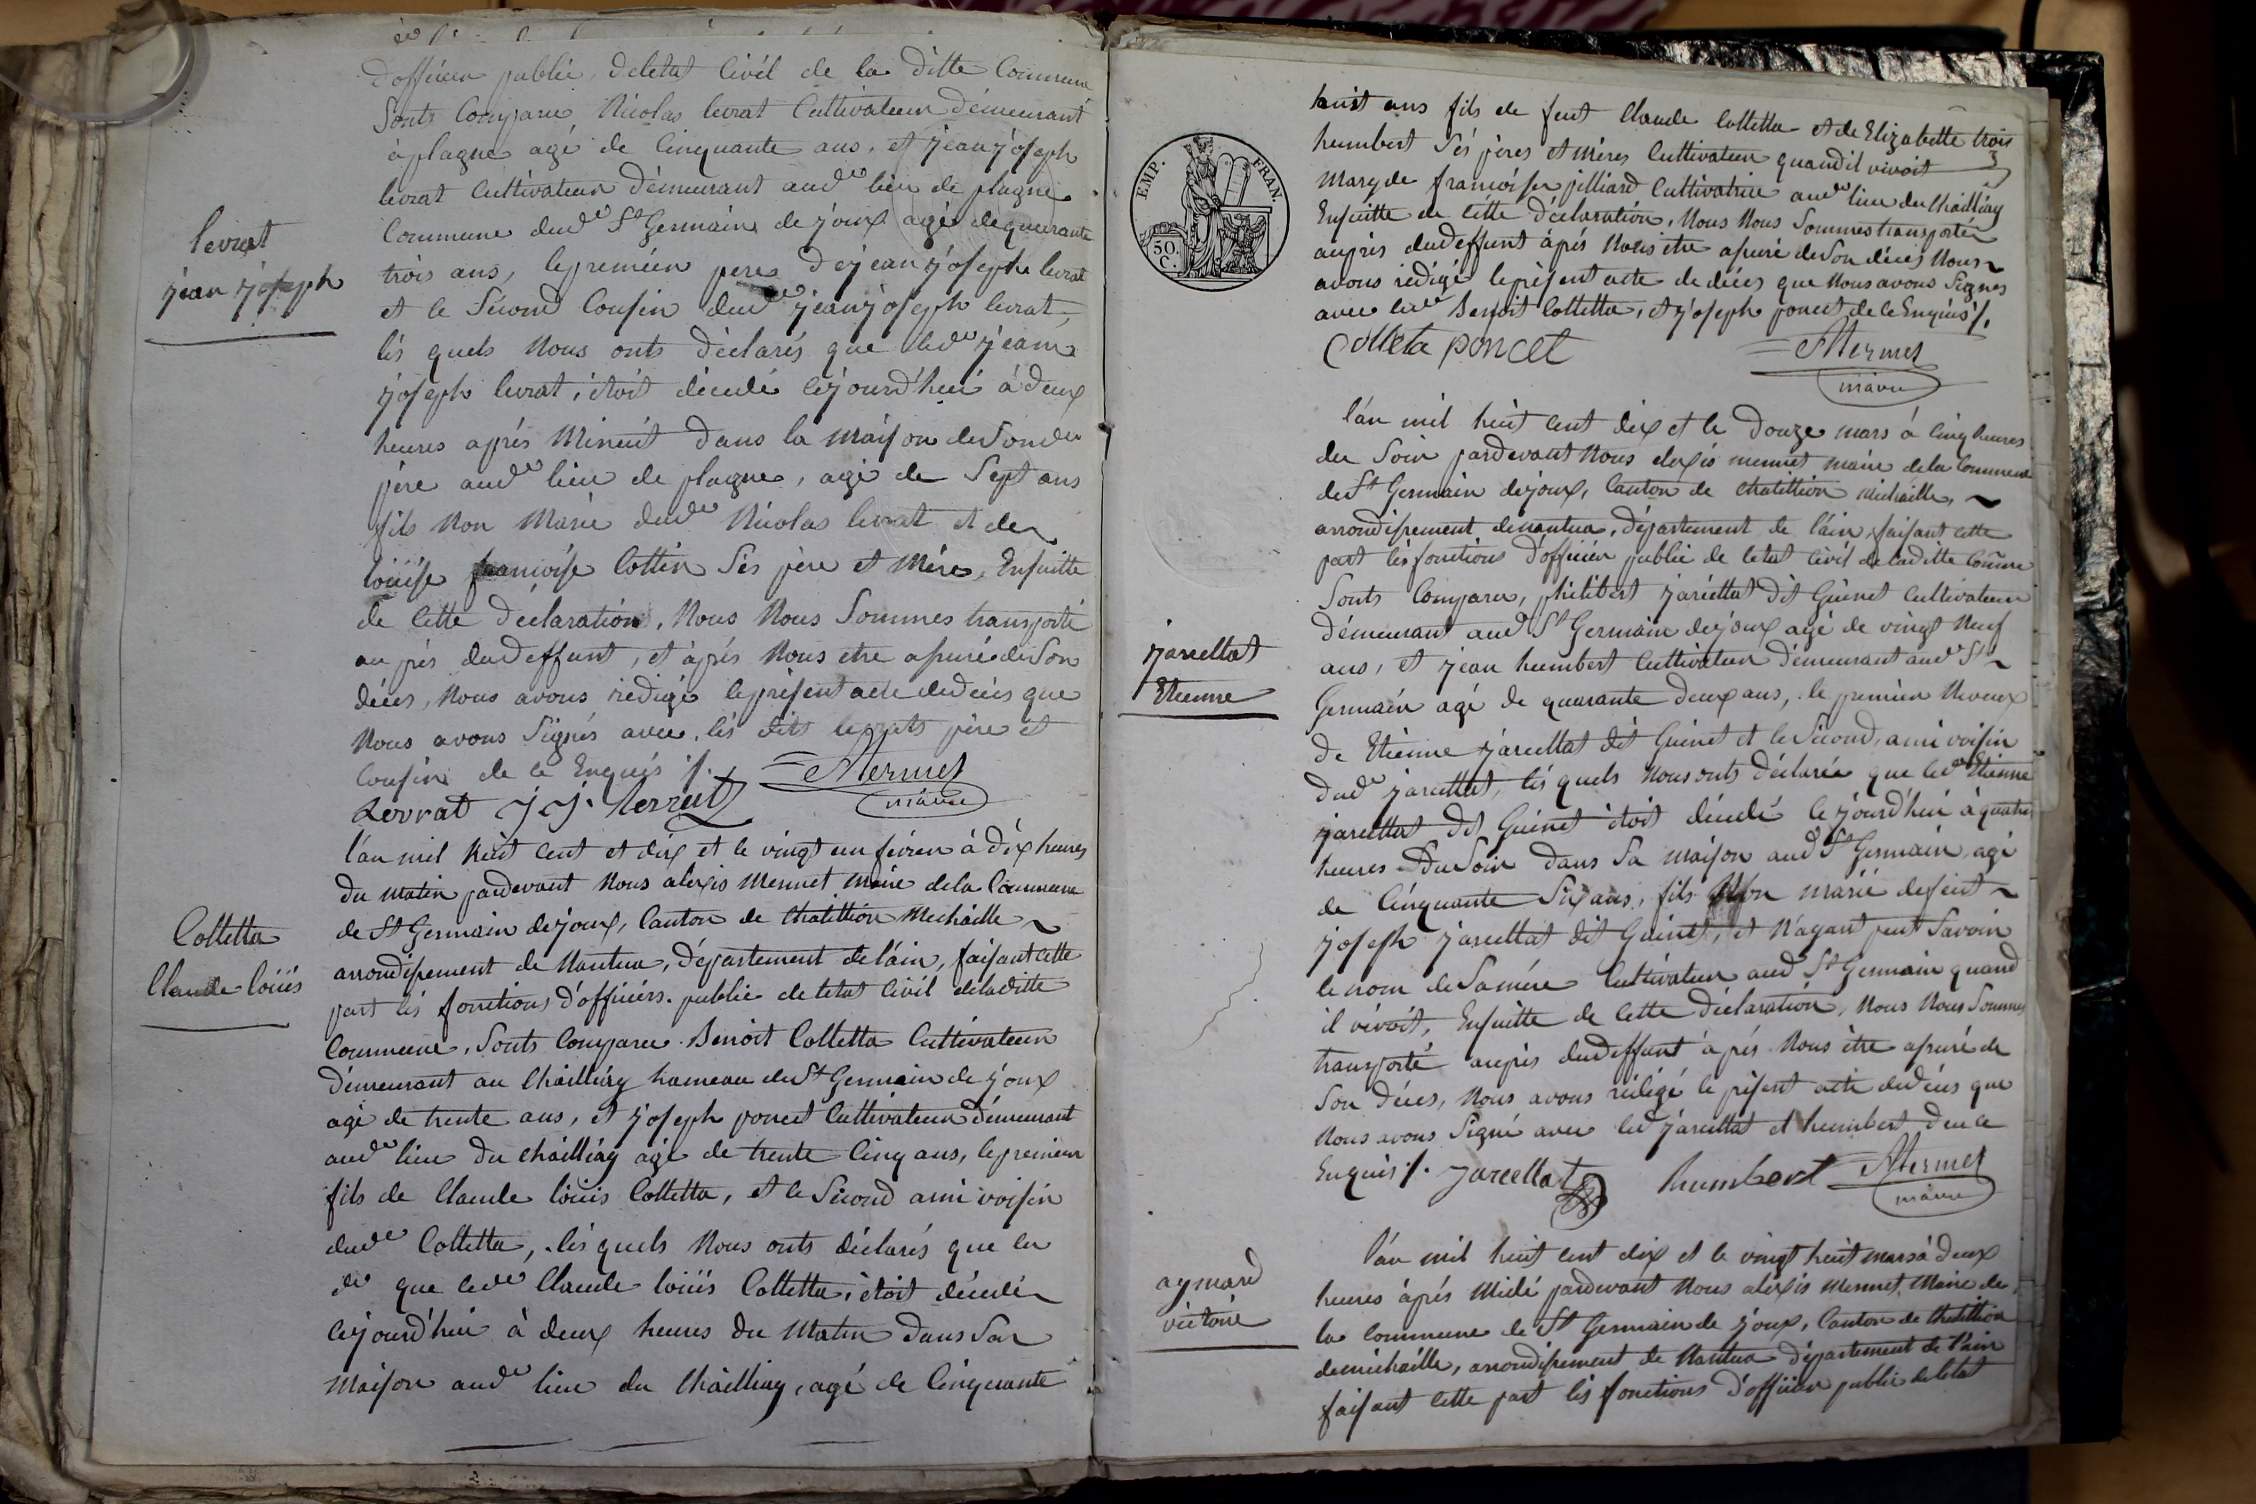 d'officier public de letat Civil de la ditte Commune
Sonts Comparu Nicolas levrat Cultivateur démeurant
à plagne agé de Cinquante ans, et jean joseph
levrat Cultivateur démeurant aud lieu de plagne
Commune dud St Germain de joux agé de quarante
trois ans, le premier pere de jean joseph levrat
et le Sécond Cousin dud jean joseph levrat,
lés quels Nous onts déclarés que led jean
joseph levrat, étoit décédé cejourd'hui à deux
heures aprés Minuit dans la maison de Sond
pére aud lieu de plagne, agé de Sept ans
fils Non Marié dud Nicolas levrat et de
loüise francoise Cottin Sés pére et Mére, Ensuitte
de Cette Déclaration, Nous Nous Sommes transporté
au prés dud deffunt, et àprés Nous etre assuré de Son
décés, Nous avons rédigé le présent acte de décés que
Nous avons Signés avec lés dits levrats pére et
Cousin de ce Enquis ./.
Levrat j j. levrat AMermet
maire
levrat
jean joseph
l'an mil huit Cent et dix et le vingt un févrien à dix heures
du matin pardevant Nous alexis Mermet maire de la Commune
de St Germain de joux, Canton de Chatillion Michaille
arrondissement de Nantua, département de l'ain, faisant cette
part lés fonctions d'officiérs public de letat Civil deladitte
Commune, Sonts Comparu Benoit Colletta Cultivateur
démeurant au Chailliay hameau de St Germain de joux
agé de trente ans, et joseph poncet Cultivateur démeurant
aud lieu du Chailliay agé de trente Cinq ans, le premier
fils de Claude loüis Colletta, et le Sécond ami voisin
dud Colletta, lés quels Nous onts déclarés que le
d que led Claude loüis Colletta, étoit décédé
cejourd'hui à deux heures du Matin dans Sa
Maison aud lieu du Chailliay, agé de Cinquante
Colletta
Claude loüis
EMP. FRAN.
50 C.
huit ans fils de feut Claude Colletta et de Elizabette trois
humbert Sés péres et méres Cultivateur quand il vivoit
Mary de francoise jilliard Cultivatrice aud lieu du Chailliay
Ensuitte de Cétte déclaration, Nous Nous Sommes transportés
auprés dud deffunt àprés Nous etre assuré de Son décés Nous
avons rédigé le présent acte de décés que Nous avons Signés
avec led Benoit Colletta, et joseph poncet de ce Enquis ./.
Colleta poncet AMermet
maire
l'an mil huit cent dix et le Douze mars à Cinq heures
du Soir pardevant Nous alexis mermet maire de la Commune
de St Germain de joux, Canton de Chatillion michaille,
arrondissement de nantua, département de l'ain, faisant cette
part lés fonctions d'officiér public de letat Civil de laditte Comune
Sonts Comparu, philibert jarcellat dit Guinet Cultivateur
démeurant aud St Germain de joux agé de vingt Neuf
ans, et jean humbert Cultivateur démeurant aud St
Germain agé de quarante deux ans, le premier Neveux
de Etienne jarcellat dit Guinet et le Sécond, ami voisin
dud jarcellat, lés quels Nous onts déclarés que led Etienne
jarcellat dit Guinet étoit décédé cejourd'hui à quatre
heures Du Soir dans Sa maison aud St Germain, agé
de Cinquante Six ans, fils Non marié de feut
joseph jarcellat dit Guinet, et N'ayant peut Savoir
le nom de Sa mére Cultivateur aud St Germain quand
il vivoit, Ensuitte de Cette Déclaration, Nous Nous Sommes
transporté auprés dud deffunt àprés Nous être assuré de
Son décés, Nous avons rédigé le présent acte de décés que
Nous avons Signé avec led jarcellat et humbert de ce
Enquis ./. jarcellat humbert AMermet
maire
jarcellat
Etienne
l'an mil huit cent dix et le vingt huit mars à deux
heures àprés Midi pardevant Nous alexis Mermet, Maire de
la Commune de St Germain de joux, Canton de Chatillion
demichaille, arrondissement de Nantua département de l'ain
faisant cette part lés fonctions d'officier public de letat
aymard
victoire